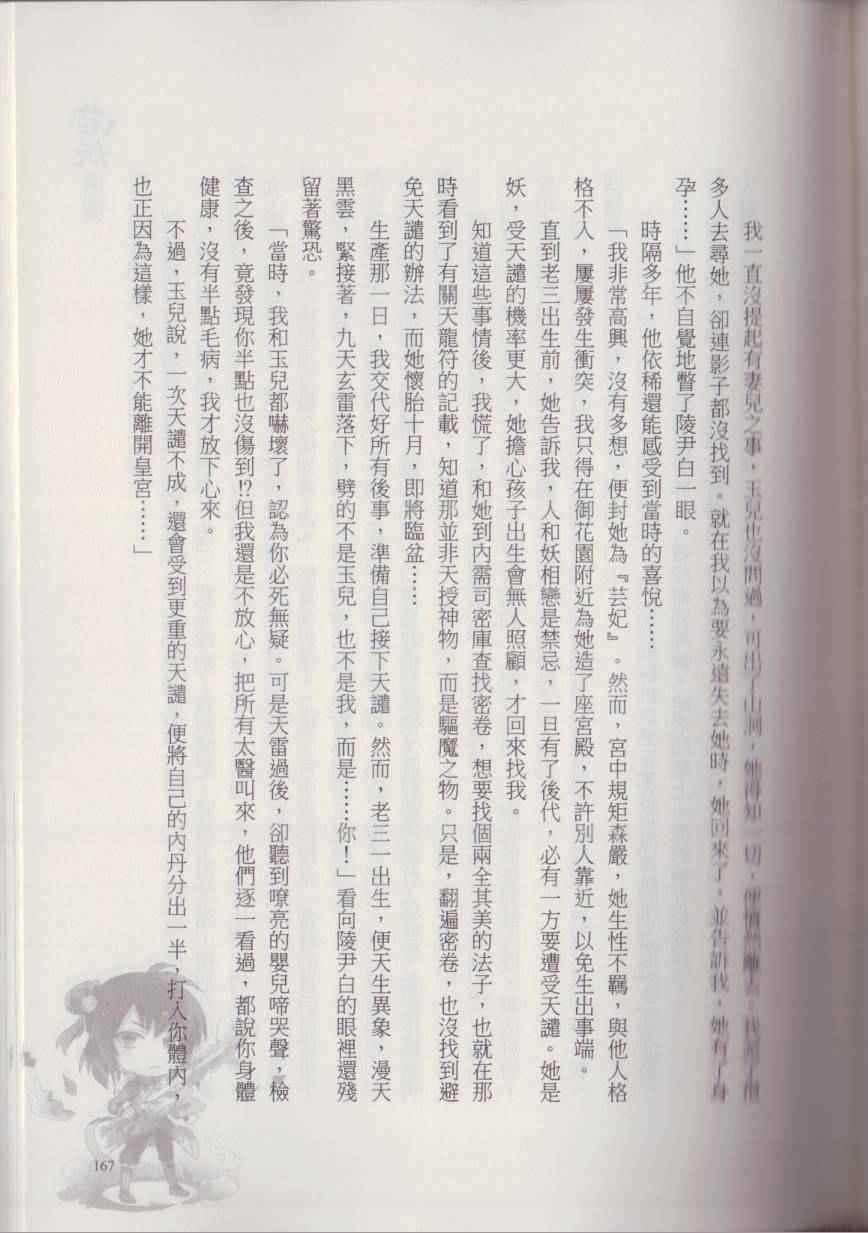 我一直沒提起有妻兒之事，玉兒也沒問過，可出了山洞，她得知一切，便憤然離去。我派了很
多人去尋她，卻連影子都沒找到。就在我以為要永遠失去她時，她回來了。並告訴我，她有了身
孕……」他不自覺地瞥了陵尹白一眼。
時隔多年，他依稀還能感受到當時的喜悅……
「我非常高興，沒有多想，便封她為『芸妃』。然而，宮中規矩森嚴，她生性不羈，與他人格
格不入，屢屢發生衝突，我只得在御花園附近為她造了座宮殿，不許別人靠近，以免生出事端。
直到老三出生前，她告訴我，人和妖相戀是禁忌，一旦有了後代，必有一方要遭受天譴。她是
妖，受天譴的機率更大，她擔心孩子出生會無人照顧，才回來找我。
知道這些事情後，我慌了，和她到內需司密庫查找密卷，想要找個兩全其美的法子，也就在那
時看到了有關天龍符的記載，知道那並非天授神物，而是驅魔之物。只是，翻遍密卷，也沒找到避
免天譴的辦法，而她懷胎十月，即將臨盆……
生產那一日，我交代好所有後事，準備自己接下天譴。然而，老三一出生，便天生異象，漫天
黑雲，緊接著，九天玄雷落下，劈的不是玉兒，也不是我，而是……你！」看向陵尹白的眼裡還殘
留著驚恐。
「當時，我和玉兒都嚇壞了，認為你必死無疑。可是天雷過後，卻聽到嘹亮的嬰兒啼哭聲，檢
查之後，竟發現你半點也沒傷到!?但我還是不放心，把所有太醫叫來，他們逐一看過，都說你身體
健康，沒有半點毛病，我才放下心來。
不過，玉兒說，一次天譴不成，還會受到更重的天譴，便將自己的內丹分出一半，打入你體內，
也正因為這樣，她才不能離開皇宮……」
167